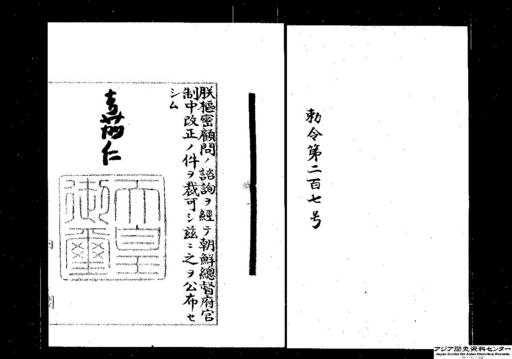 勅令第二百七号
朕樞密顧問ノ諮詢ヲ經テ朝鮮總督府官
制中改正ノ件ヲ裁可シ茲ニ之ヲ公布セ
シム
嘉仁
天皇
御璽
アジア歴史資料センター
Japan Center for Asian Historical Records